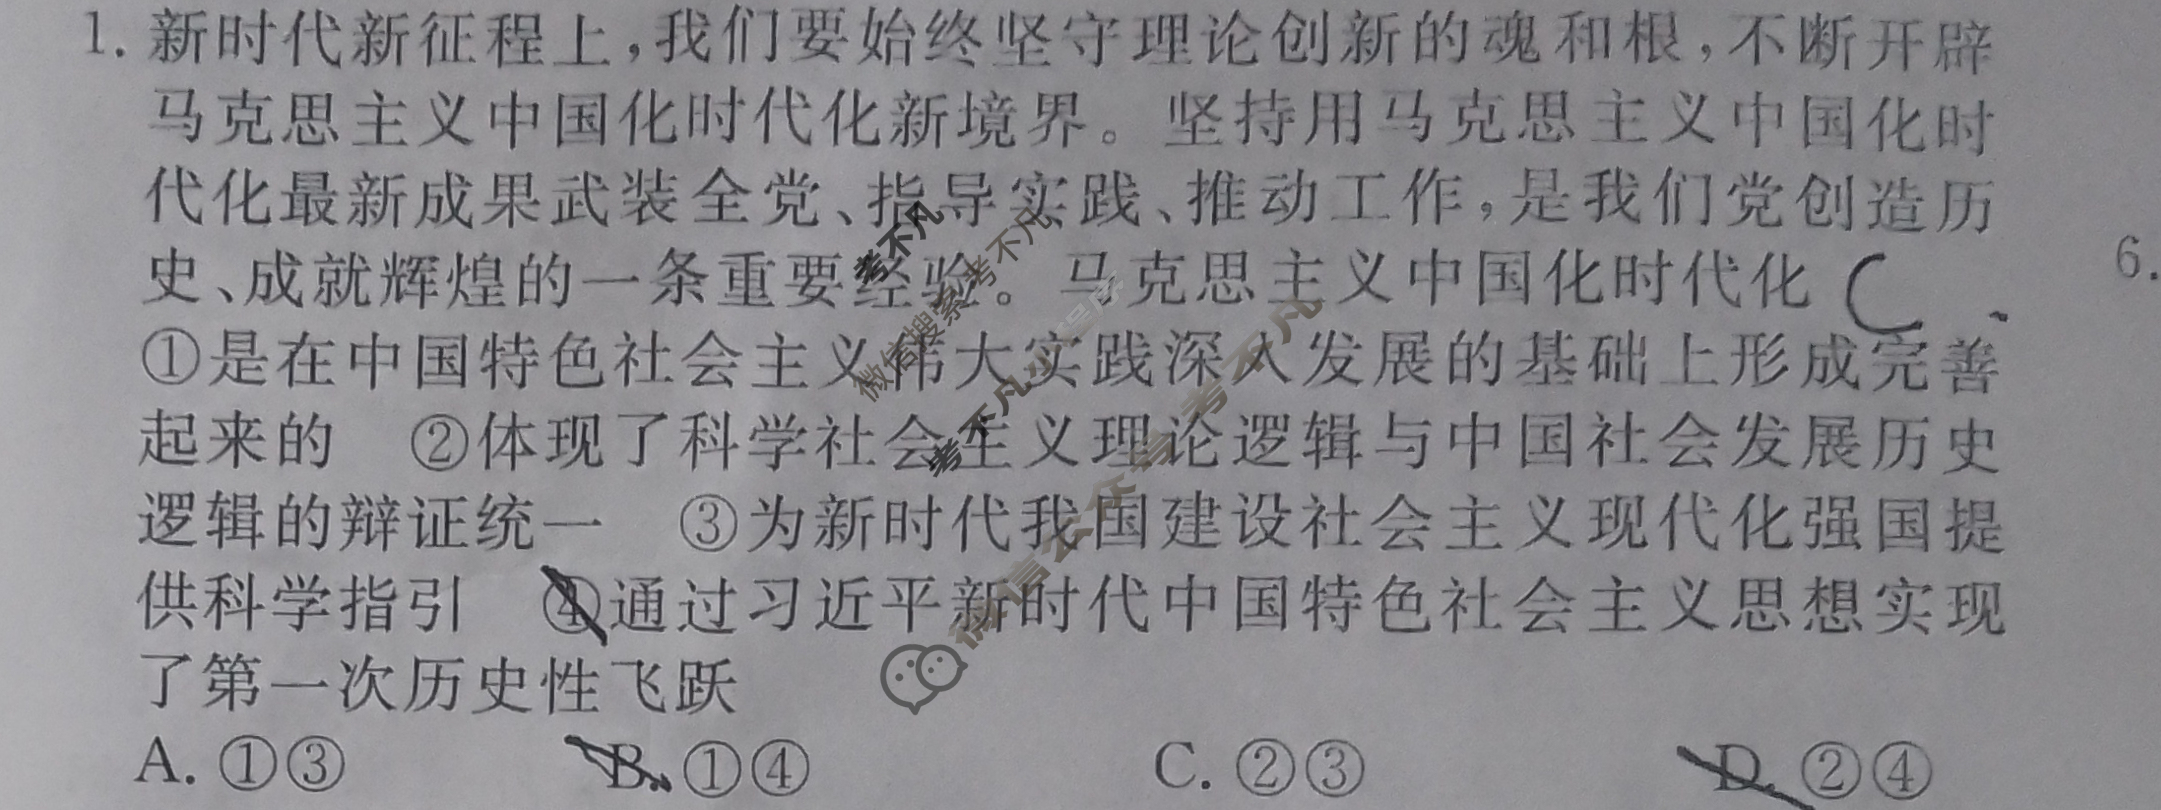 1. 新时代新征程上,我们要始终坚守理论创新的魂和根,不断开辟
马克思主义中国化时代化新境界。坚持用马克思主义中国化时
代化最新成果武装全党、指导实践、推动工作,是我们党创造历
史、成就辉煌的一条重要经验。马克思主义中国化时代化 C
①是在中国特色社会主义伟大实践深入发展的基础上形成完善
起来的 ②体现了科学社会主义理论逻辑与中国社会发展历史
逻辑的辩证统一 ③为新时代我国建设社会主义现代化强国提
供科学指引 ④通过习近平新时代中国特色社会主义思想实现
了第一次历史性飞跃
A. ①③ B. ①④ C. ②③ D. ②④
6.
考不凡
微信搜索 考不凡
考不凡小程序
微信公众号 考不凡